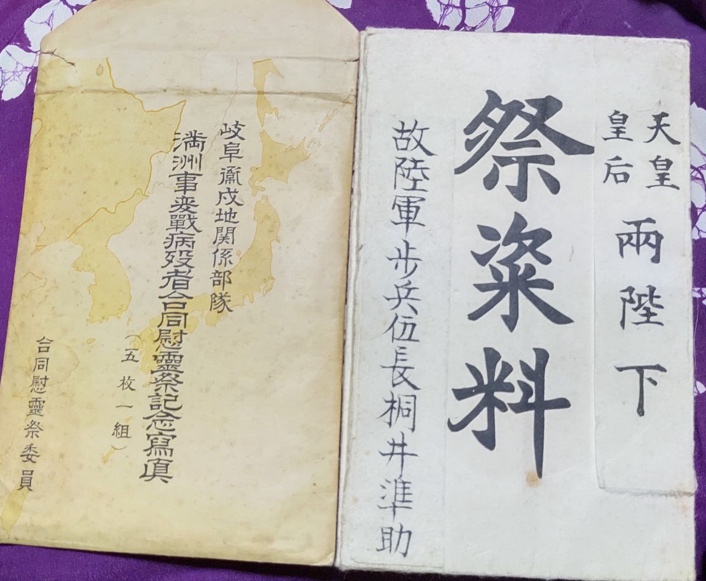 天皇
皇后
兩陛下
祭粢料
故陸軍步兵伍長桐井準助
岐阜衞戍地関係部隊
満洲事変戰病歿者合同慰靈祭記念寫眞
(五枚一組)
合同慰靈祭委員